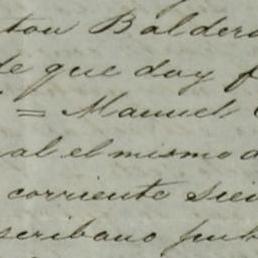 ton Balder
de que doy f
= Manuel
al el mismo d
corriente Sei
scribano pub